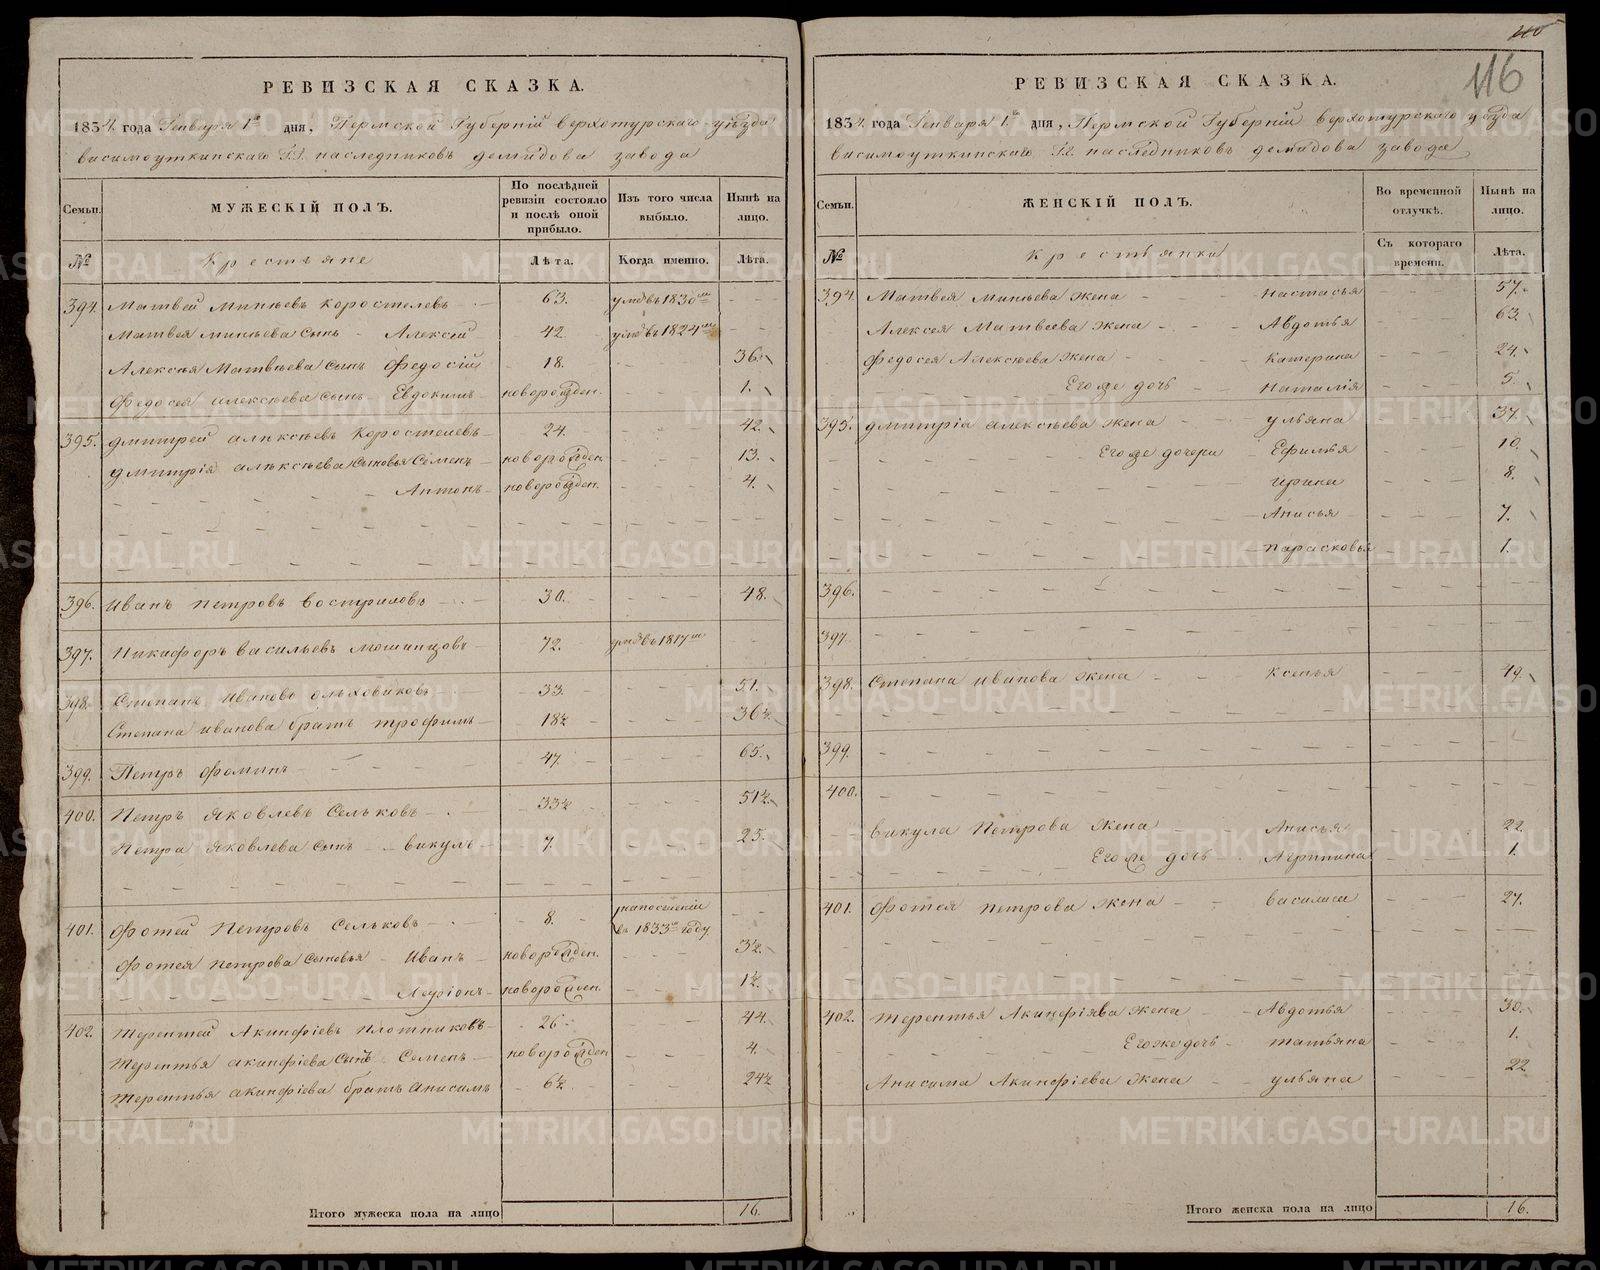 РЕВИЗСКАЯ СКАЗКА.
1834. года Генваря 1го дня, Пермской Губерніи верхотурскаго уѣзда
висимоуткинскаго наслѣдниковъ демидова завода
Семьи.
МУЖЕСКІЙ ПОЛЪ.
По послѣдней ревизіи состояло и послѣ оной прибыло.
Изъ того числа выбыло.
Нынѣ на лицо.
№
Крестьяне
Лѣта.
Когда именно.
Лѣта.
394. Матвей Минѣевъ Коростелевъ 63. умре въ 1830м
Матвея минѣева сынъ Алексѣй 42. умре въ 1824м
Алексѣя Матвѣева сынъ Федосій 18. 36.
Федосея алексѣева сынъ Евдокимъ новорожден. 1.
395. дмитрей алексѣевъ Коростелевъ 24. 42.
дмитрія алексѣева сыновья Семенъ новорожден. 13.
Антонъ новорожден. 4.
396. иванъ петровъ востриловъ 30. 48.
397. Никифоръ васильевъ мошинцовъ 72. умре въ 1817м
398. Степанъ ивановъ ольховиковъ 33. 51.
Степана иванова братъ трофимъ 18½ 36½
399. Петръ фоминъ 47. 65.
400. Петръ яковлевъ Сельковъ 33½ 51½
Петра яковлева сынъ викулъ 7. 25.
401. фотей Петровъ Сельковъ 8. на поселеніи въ 1833м году
фотея петрова сыновья Иванъ новорожден. 3½
новорожден. 1½
402. терентей Акинфіевъ плотниковъ 26 44.
терентья акинфіева сынъ Семенъ новорожден 4.
терентья акинфіева братъ анисимъ 6½ 24½
Итого мужеска пола на лицо 16.
116
РЕВИЗСКАЯ СКАЗКА.
1834. года Генваря 1го дня, Пермской Губерніи верхотурскаго уѣзда
висимоуткинскаго наслѣдниковъ демидова завода
Семьи.
ЖЕНСКІЙ ПОЛЪ.
Во временной отлучкѣ.
Нынѣ на лицо.
№
Крестьянки
Съ котораго времени.
Лѣта.
394. Матвея Минѣева жена настасья 57.
Алексея Матвеева жена Авдотья 63
федосея Алексѣева жена катерина 24.
Его же дочь наталія 5.
395. дмитрія алексѣева жена ульяна 37.
Его же дочери Ефимья 10.
ирина 8.
Анисья 7.
парасковья 1.
396.
397
398. Степана иванова жена Ксенья 49.
399.
400.
викула Петрова жена Анисья 22.
Его же дочь Агрипина 1.
401. фотея петрова жена василиса 27.
402. терентья Акинфіява жена Авдотья 30.
Его же дочь татьяна 1.
Анисима Акинфіева жена ульяна 22
Итого женска пола на лицо 16.
METRIKI.GASO-URAL.RU